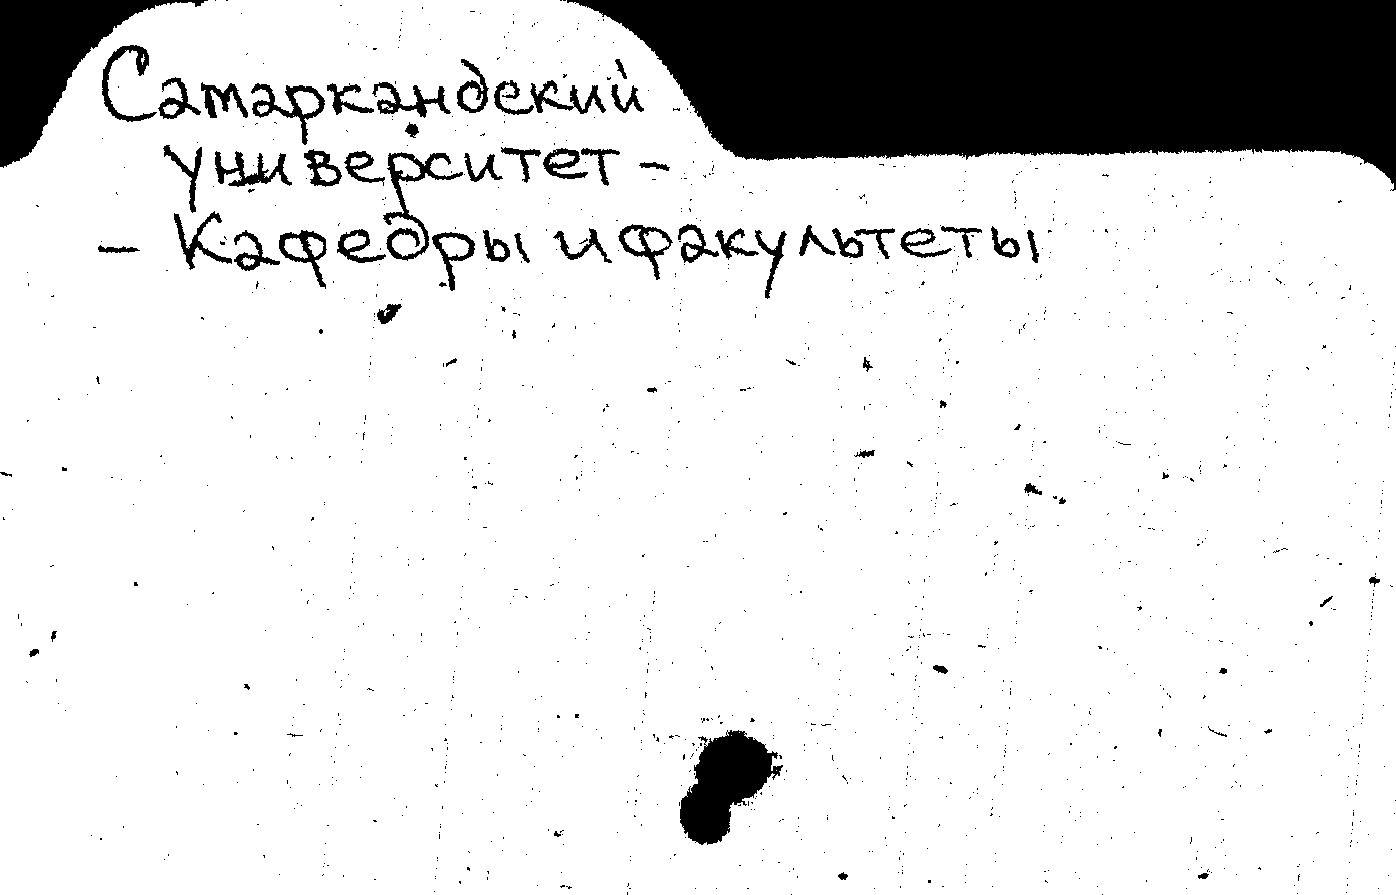 Самаркандский
университет -
- Кафедры и факультеты